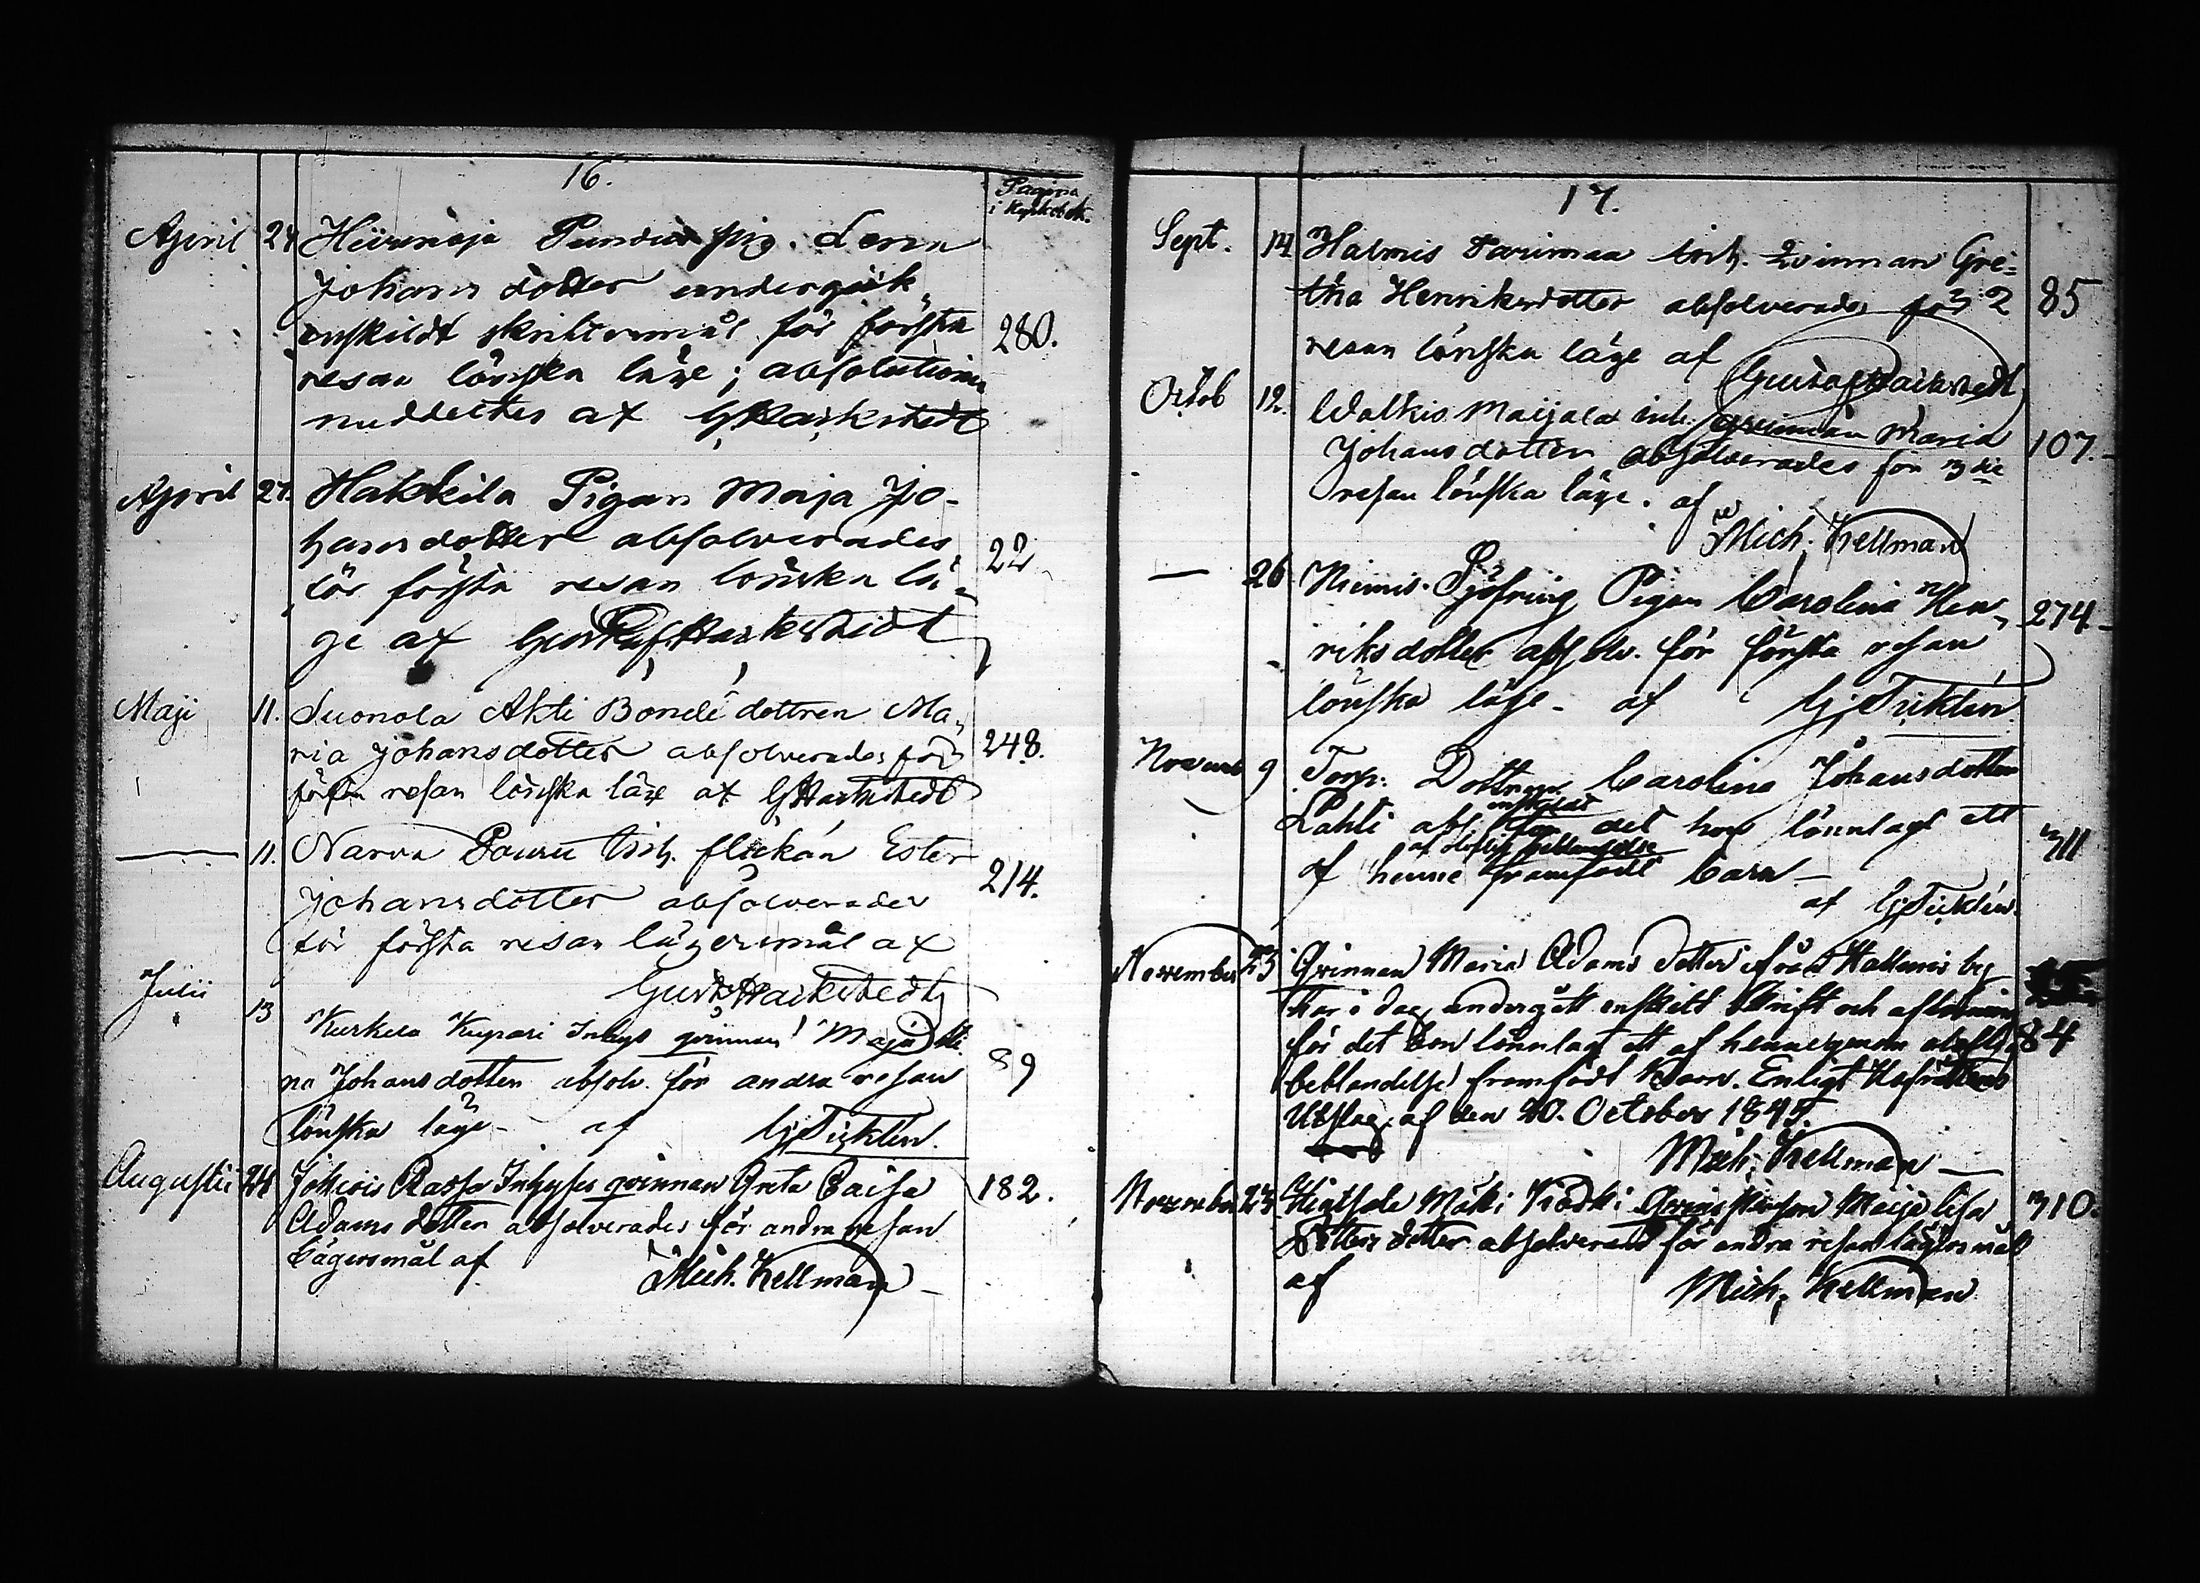 16.
Pagina
i Kyrkobok.
April 24 Hiirinoja Pundin pig. Lena
Johans dotter undergick
enskildt skriftermål för första
resan lönska läge; absolution
meddeltes af G Hackstedt
280.
April 27. Hakkila Pigan Maja Jo-
hansdotter absolverades
för första resan lönska lä-
ge af Gustaf Hackstedt
22
Maji 11. Suonola Akti Bonde dottren Ma-
ria Johansdotter absolverades för
första resan lönska läge af G Hackstedt
248.
— 11. Narva Pouru inh. flickan Ester
Johansdotter absolverades
för första resan lägersmål af
Gust Hackstedt
214.
Julii 13 Kurkela Kuppari Inhys qvinnan Maja Sti
na Johansdotter absolv. för andra resan
lönska läge - af Gj Ticklén.
89
Augusti 24 Jokiois Rassa Inhyses qvinnan Greta Caisa
Adams dotter absolverades för andra resan
Lägersmål af Mich. Kellman
182.
17.
Sept. 14 Halmis Tarimaa inh. Qvinnan Gre=
tha Henriksdotter absolverades för 2
resan lönska läge af Gustaf Hackstedt
85
Octob 12. Walkis Maijala inh. qvinnan Maria
Johansdotter absolverades för 3die
resan lönska läge. af
Mich. Kellman
107.
— 26 Niemis Pigan Carolina Hen-
riksdotter absolv. för första resan
lönska läge - af Gj Ticklén
274.
Novemb 9 Torp. Dottren Carolina Johansdotter
Lahti abs. enskildt för det hon lönnlagt ett
af olofligt beblandelse
af henne framfödt barn -
af Gj Ticklén.
311
November 23 Qvinnan Maria Adams dotter från Hallmis by
har i dag undergått enskilt Skrift och aflösning
för det hon lönnlagt ett af henne genom olofl.
beblandelse framfödt Barn. Enligt Hofrättens
Utslag af den 20. October 1845.
Mich. Kellman —
84
November 23 Mäki Maija Lisa
dotter absolverad för andra resan lägersmål
af Mich. Kellman
310.